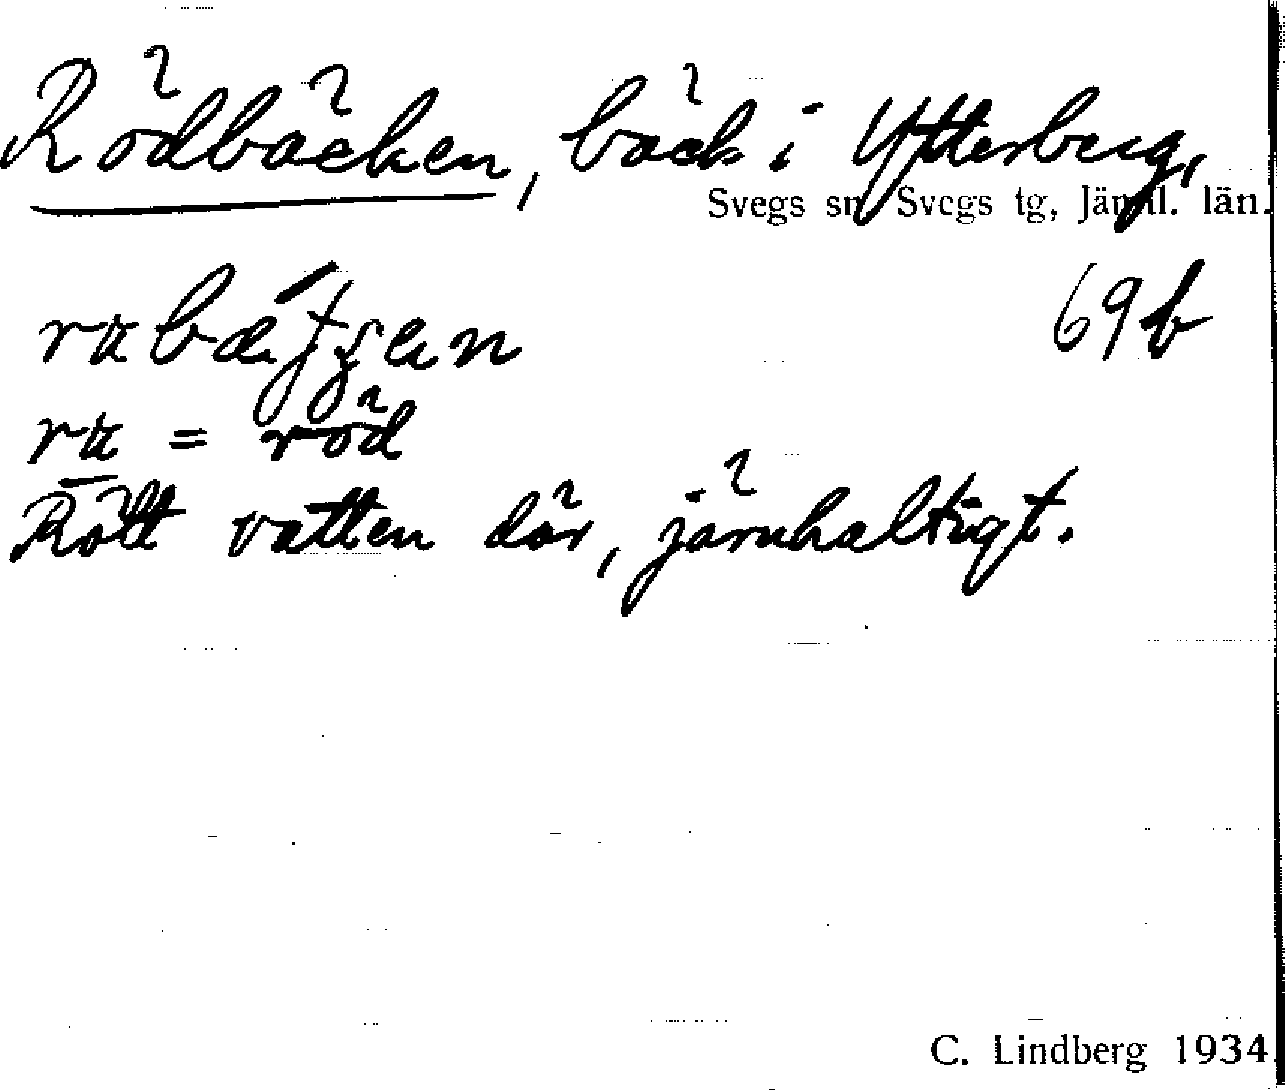 Rödbäcken, bäck i Ytterberg,
Svegs sn, Svegs tg, Jämtl. län.
69b
ru = röd
Rött vatten där, järnhaltigt.
C. Lindberg 1934